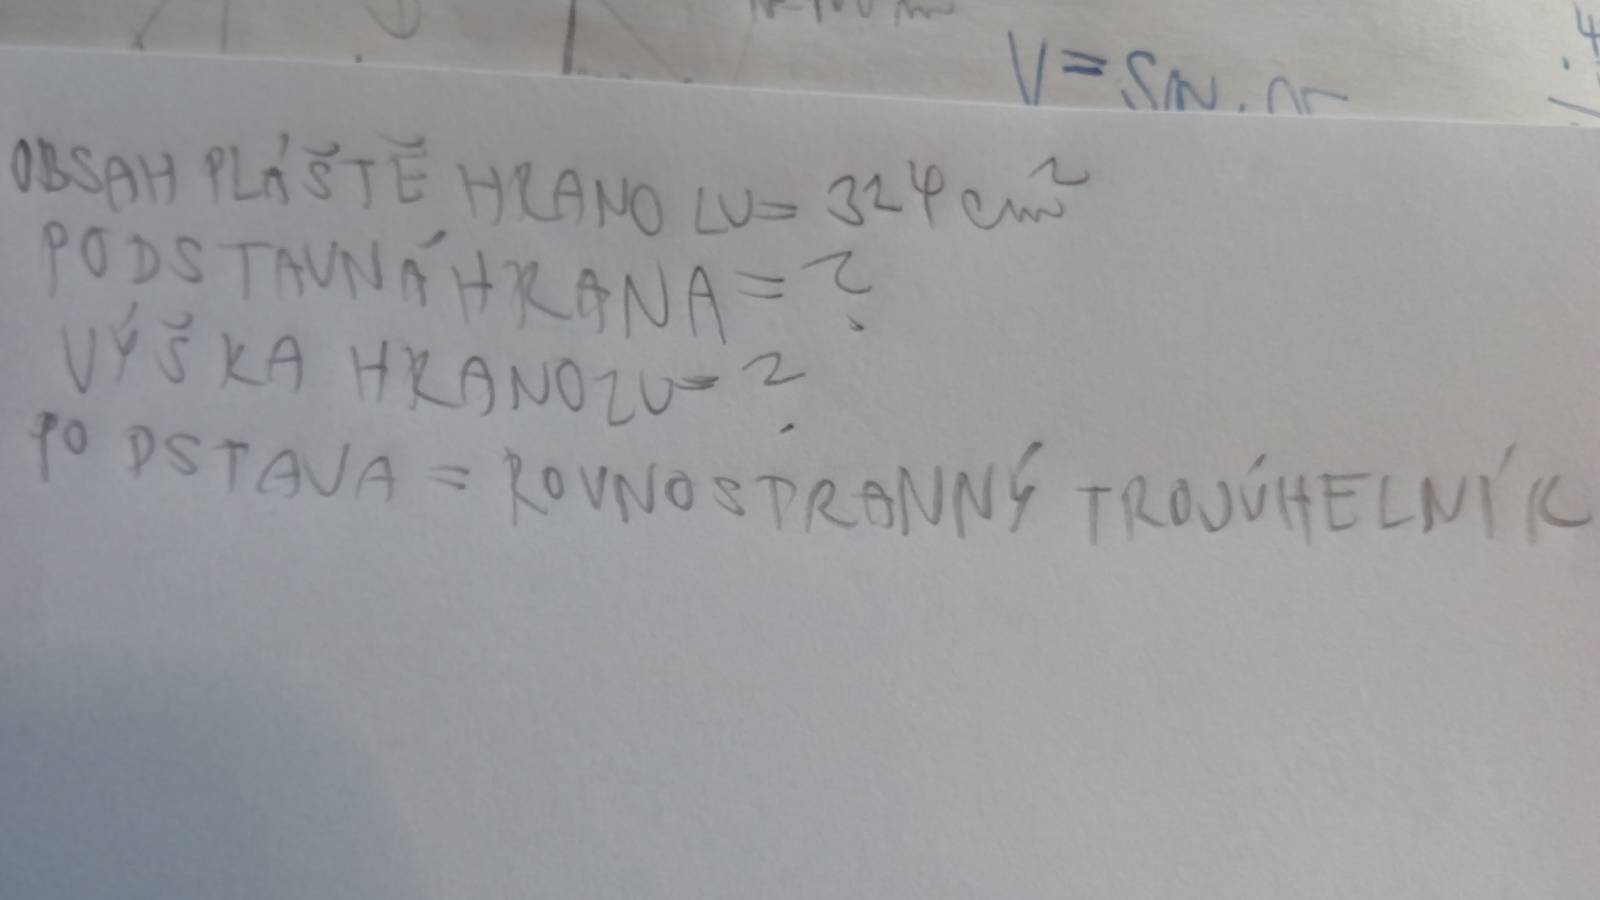 V = Sm. m
OBSAH PLÁŠTĚ HRANOLU= 324 cm²
PODSTAVNÁ HRANA = ?
VÝŠKA HRANOLU= ?
PODSTAVA = ROVNOSTRANNÝ TROJÚHELNÍK